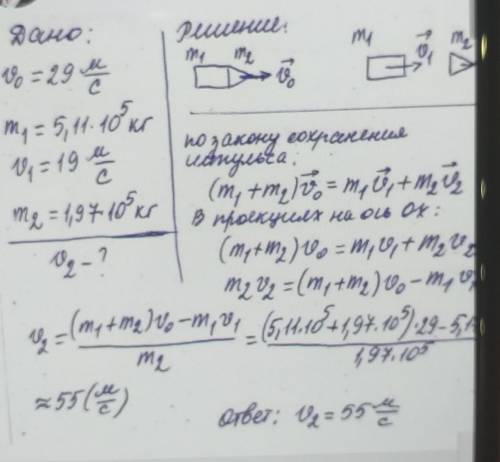 Дано:
v₀ = 29 м/с
m₁ = 5,11·10⁵ кг
v₁ = 19 м/с
m₂ = 1,97·10⁵ кг
v₂ - ?
Решение:
m₁ m₂ v⃗₀
m₁ v⃗₁ m₂
по закону сохранения
импульса:
(m₁+m₂)v⃗₀ = m₁v⃗₁ + m₂v⃗₂
В проекциях на ось Ox:
(m₁+m₂)v₀ = m₁v₁ + m₂v₂
m₂v₂ = (m₁+m₂)v₀ - m₁v₁
v₂ = ((m₁+m₂)v₀ - m₁v₁)/m₂ = ((5,11·10⁵+1,97·10⁵)·29-5,1)/(1,97·10⁵)
≈ 55 (м/с)
Ответ: v₂ = 55 м/с